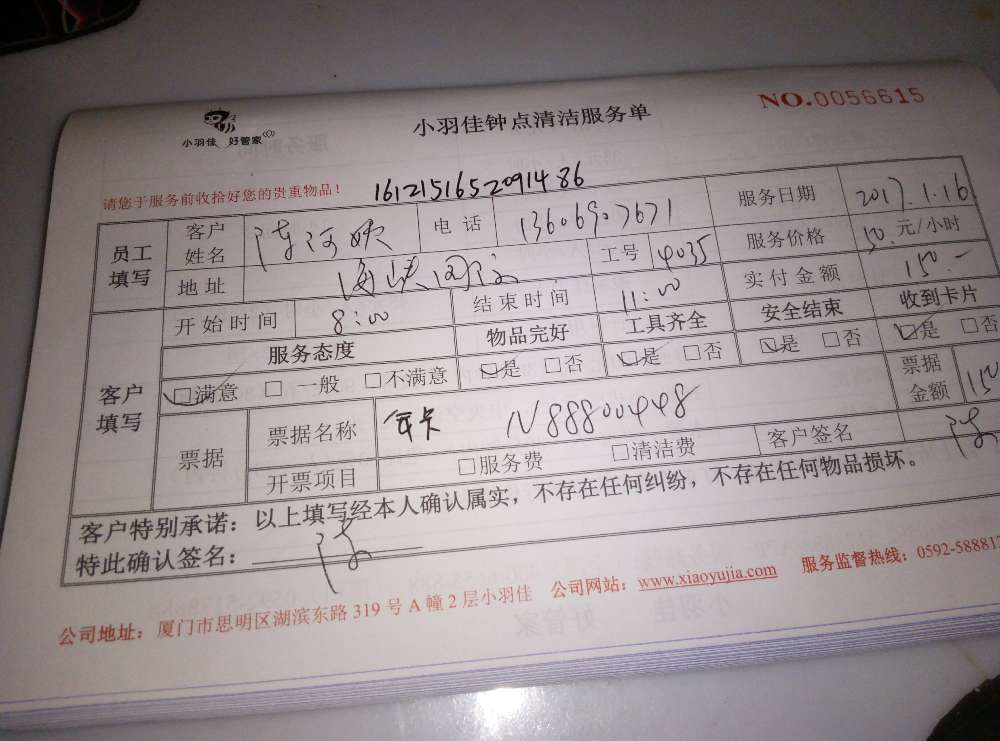 小羽佳 好管家
小羽佳钟点清洁服务单
NO.0056615
请您于服务前收拾好您的贵重物品！ 1612151652091486
员工填写 客户姓名 电话 13606907671 服务日期 2017.1.16
地址 工号 4035 服务价格 50.元/小时
客户填写 开始时间 8:00 结束时间 11:00 实付金额 150.-
服务态度 物品完好 工具齐全 安全结束 收到卡片
□满意 □一般 □不满意 □是 □否 □是 □否 □是 □否 □是 □否
票据 票据名称 年卡 N88800448 票据金额 150
开票项目 □服务费 □清洁费 客户签名
客户特别承诺：以上填写经本人确认属实，不存在任何纠纷，不存在任何物品损坏。
特此确认签名：
公司地址：厦门市思明区湖滨东路319号A幢2层小羽佳 公司网站：www.xiaoyujia.com 服务监督热线：0592-58881